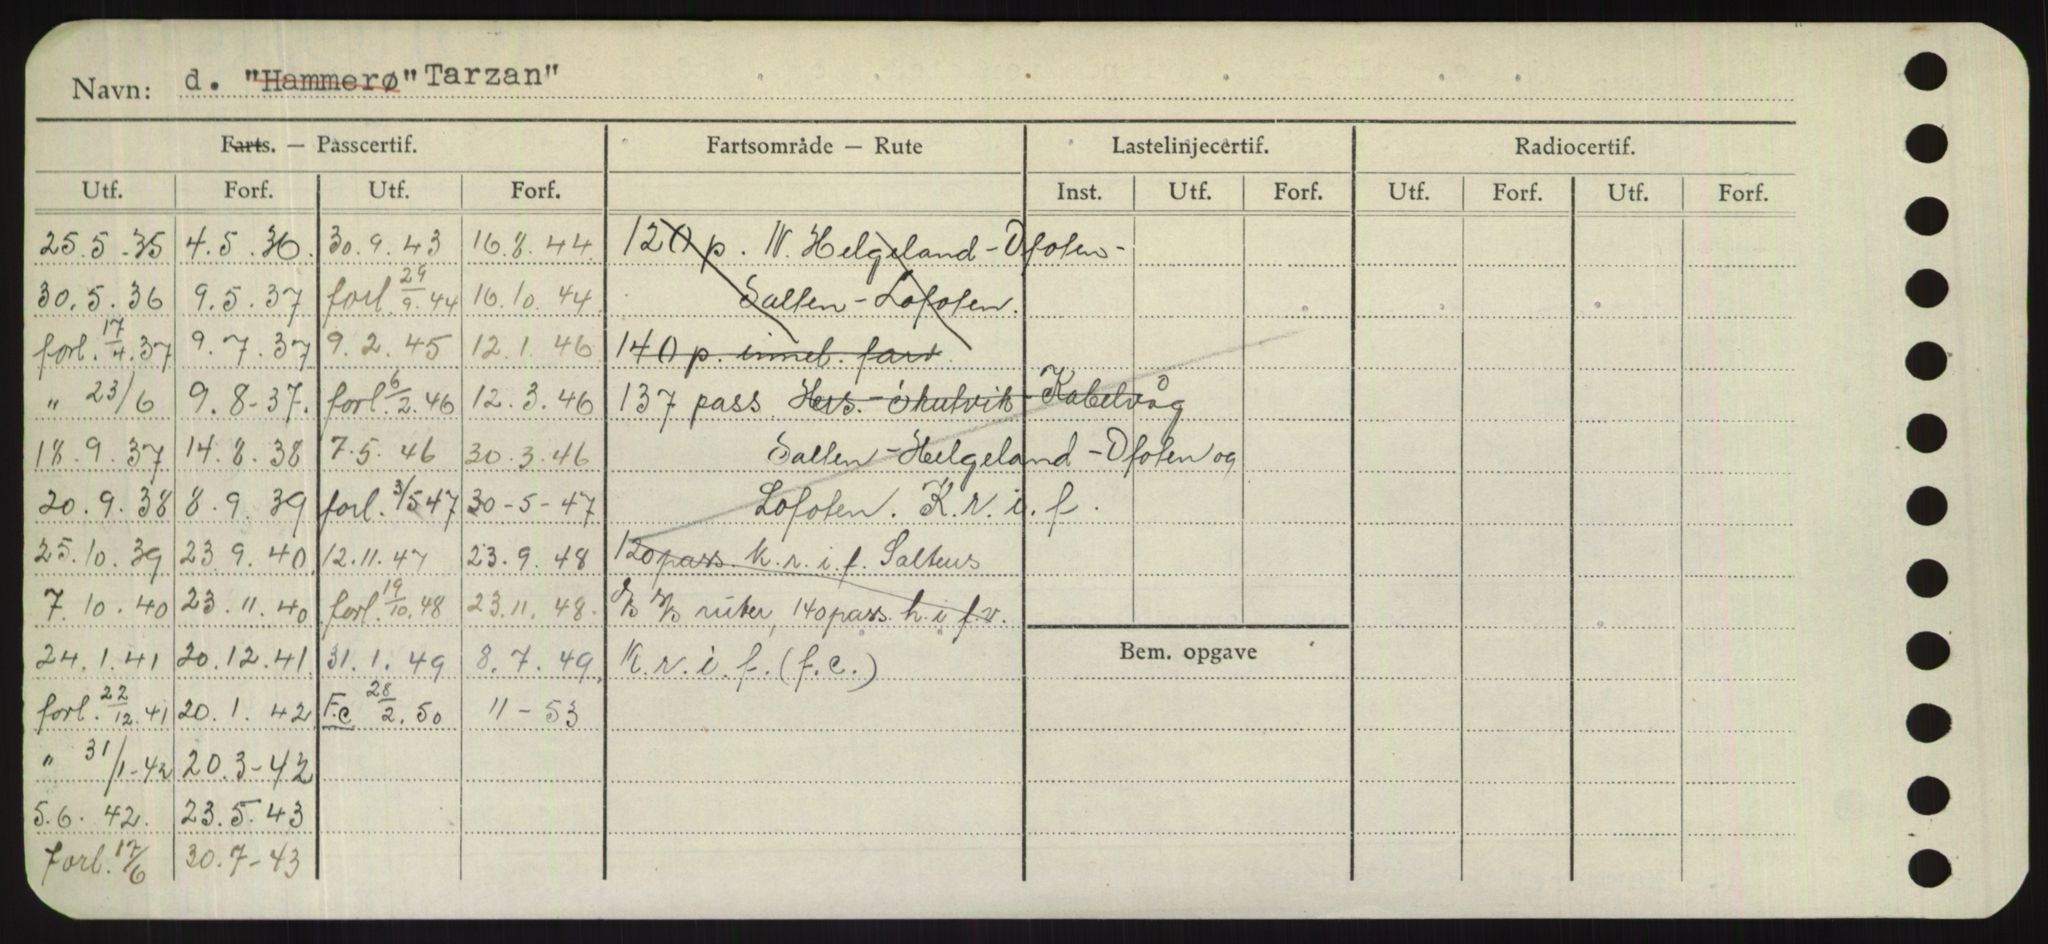 Navn: d. "Hammerø" Tarzan"
Farts. — Passcertif. Fartsområde — Rute Lastelinjecertif. Radiocertif.
Utf. Forf. Utf. Forf. Inst. Utf. Forf. Utf. Forf. Utf. Forf.
25.5.35 4.5.36. 30.9.43 16.8.44. 120 p. N. Helgeland-Ofoten-
30.5.36 9.5.37 forl. 29/9.44 16.10.44 Salten-Lofoten.
forl. 17/4.37 9.7.37 9.2.45 12.1.46 140 p. innel. fart.
" 23/6 9.8-37. forl. 6/2.46 12.3.46 137 pass. - Skutvik - Kabelvåg
18.9.37 14.8.38 7.5.46 30.3.46 Salten-Helgeland-Ofoten og
20.9.38 8.9.39 forl. 3/5 47 30-5-47 Lofoten. K.r.i.f.
25.10.39 23.9.40 12.11.47 23.9.48 120 pass. k.r.i.f. Saltens
7.10.40 23.11.40 forl. 19/10.48 23.11.48. ruter, 140 pass. h.i f.v.
24.1.41 20.12.41 31.1.49 8.7.49. K.r.i.f. (f.c.) Bem. opgave
forl. 22/12.41 20.1.42 F.c 28/2.50 11-53
" 31/1-42 20.3-42
5.6.42. 23.5.43
forl. 17/6 30.7-43